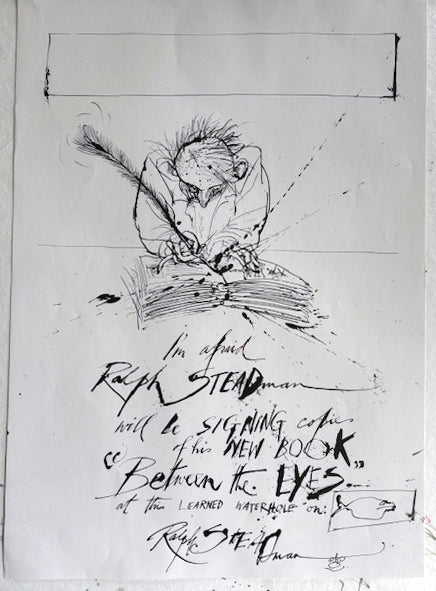 I'm afraid
Ralph STEADman
will be SIGNING copies
of his NEW BOOK
"Between the EYES..."
at this LEARNED WATERHOLE on:
Ralph STEADman